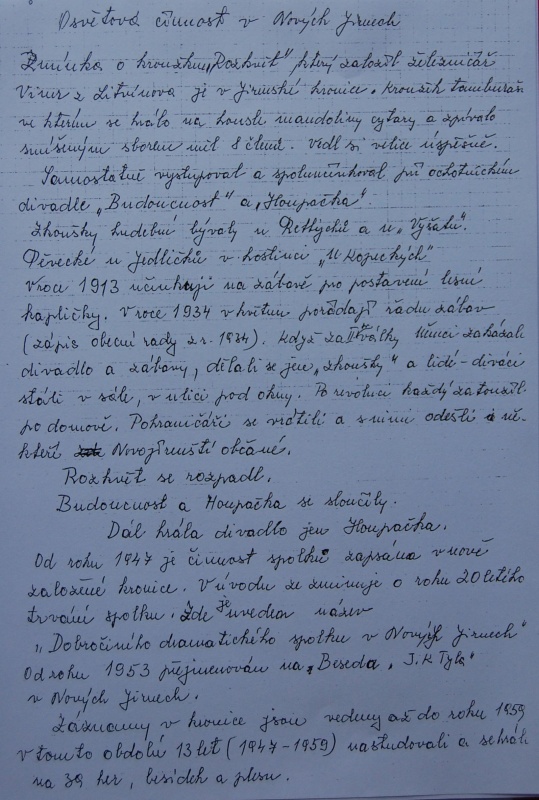 Osvětová činnost v Nových Jirnech
Zmínka o kroužku „Rozkvět" který založil železničář
Viner z Litvínova je v Jirnské kronice. Kroužek tamburaší
ve kterém se hrálo na housle mandoliny cytary a zpívalo
smíšeným sborem měl 8 členů. Vedl si velice úspěšně.
Samostatně vystupoval a spoluúčinkoval při ochotnickém
divadle „Budoucnost" a „Houpačka".
Zkoušky hudební bývaly u Rettychů a u „Vyšatů".
Pěvecké u Jedličků v hostinci „U Kopeckých"
V roce 1913 účinkují na zábavě pro postavení lesní
kapličky. V roce 1934 v květnu pořádají řadu zábav
(zápis obecní rady z r. 1934). Když za II sv války Němci zakázali
divadlo a zábavy, dělali se jen „zkoušky" a lidé-diváci
stáli v sále, v ulici pod okny. Po revoluci každý zatoužil
po domově. Pohraničáři se vrátili a s nimi odešli i ně-
kteří Novojirenští občané.
Rozkvět se rozpadl.
Budoucnost a Houpačka se sloučily.
Dál hrála divadlo jen Houpačka.
Od roku 1947 je činnost spolků zapsána v nově
založené kronice. V úvodu se zmiňuje o roku 20 letého
trvání spolku. Zde je uveden název
„Dobročiného dramatického spolku v Nových Jirnech"
Od roku 1953 přejmenován na „Beseda, J.K Tyla"
v Nových Jirnech.
Záznamy v kronice jsou vedeny až do roku 1959
v tomto období 13 let (1947-1959) nastudovali a sehráli
na 39 her, besídek a plesu.